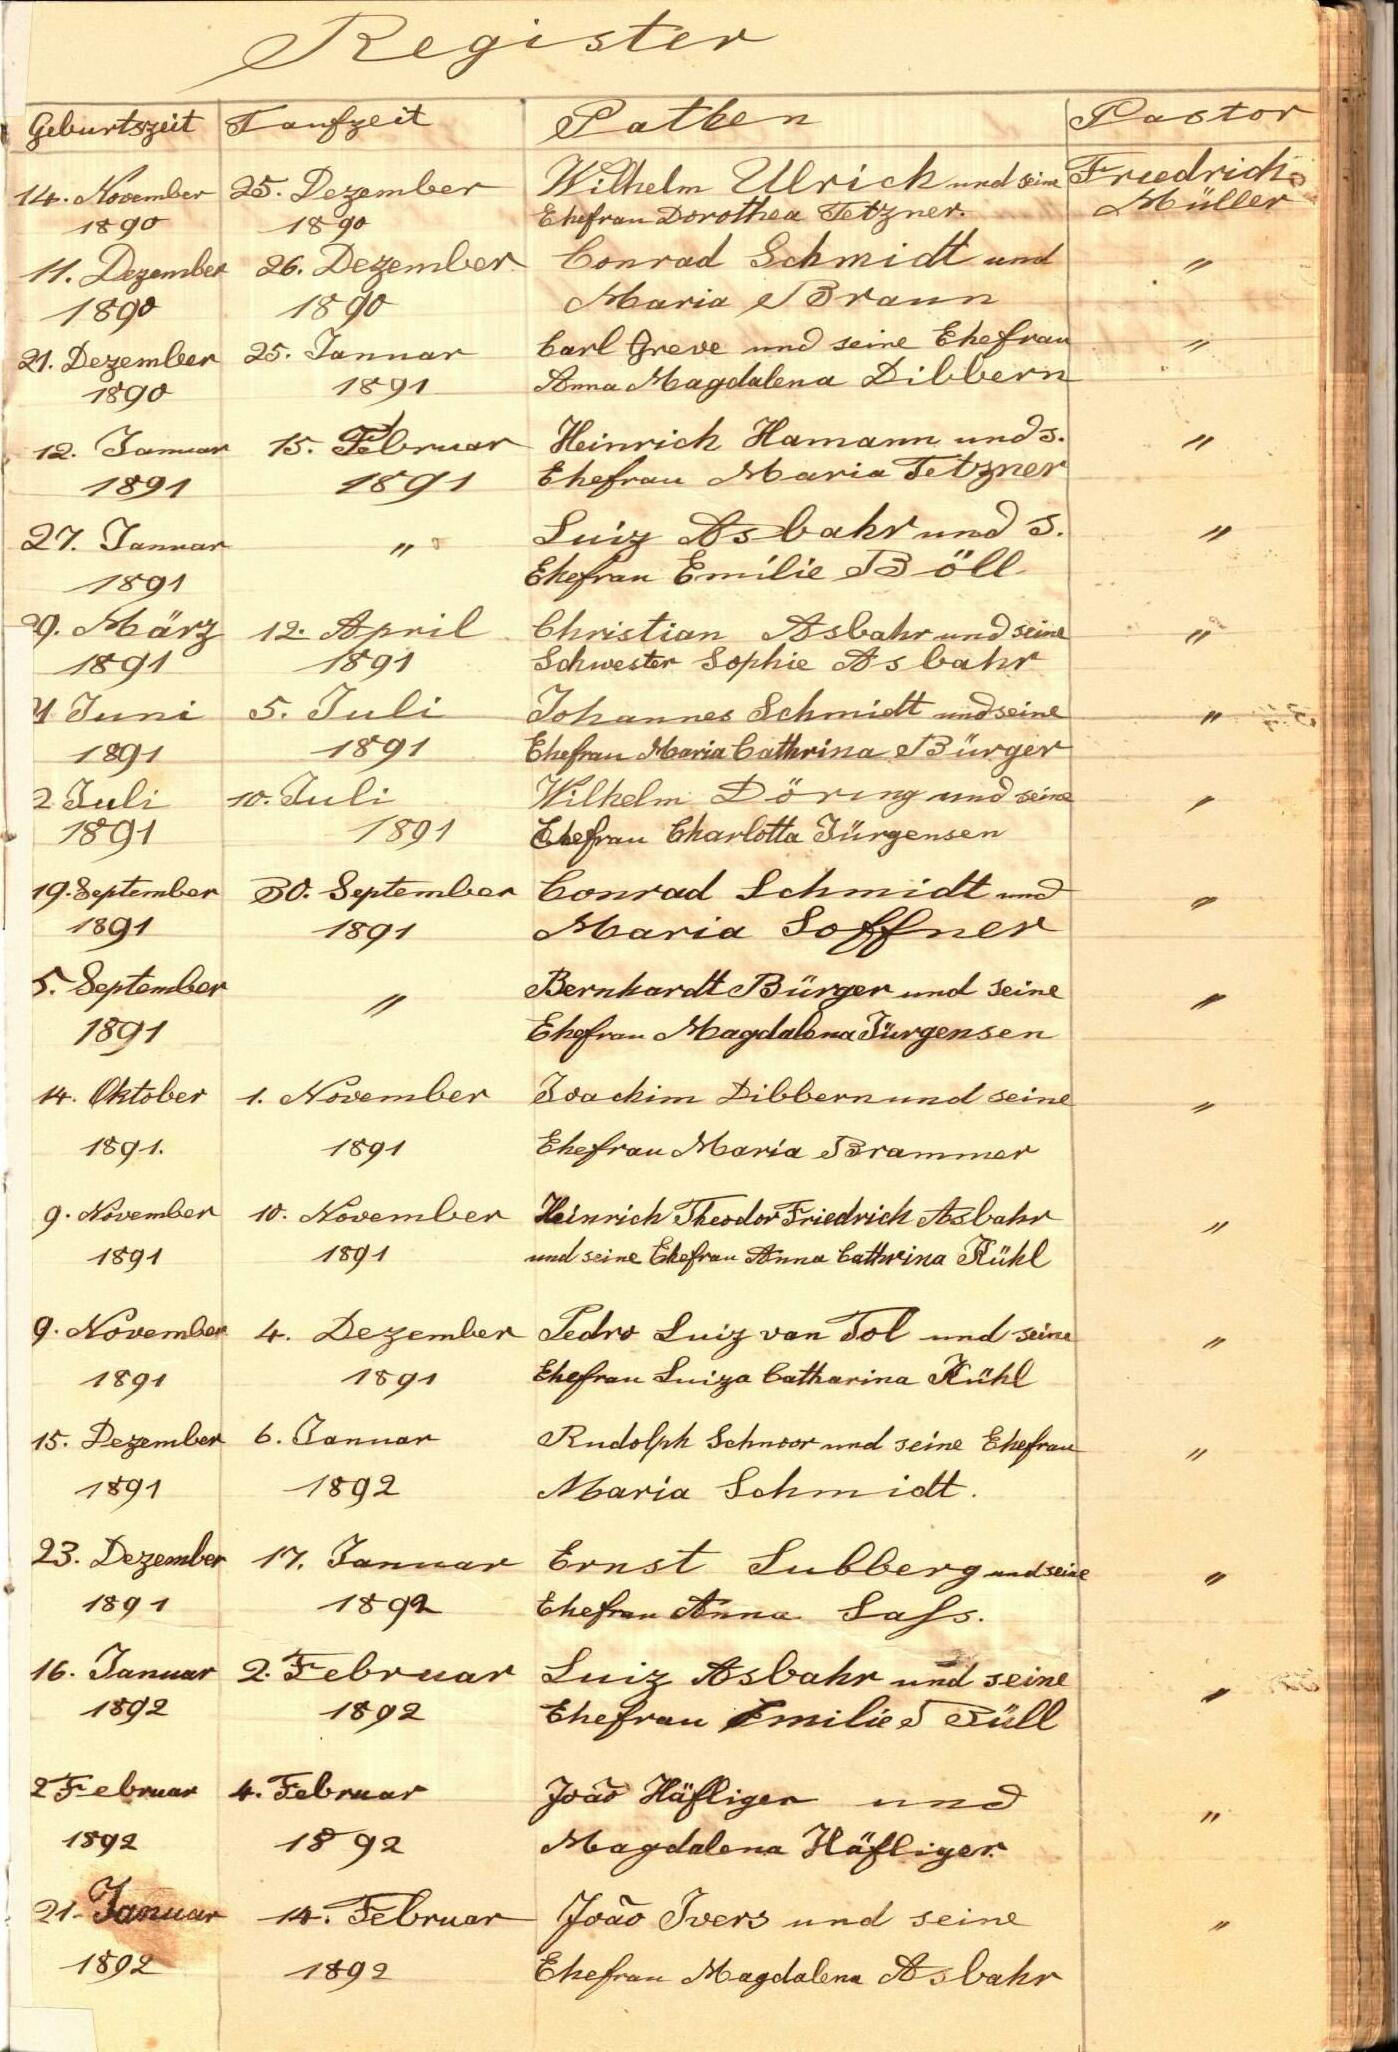 Register
Geburtszeit Taufzeit Pathen Pastor
14. November 25. Dezember Wilhelm Ulrich und seine Friedrich
1890 1890 Ehefrau Dorothea Tetzner. Müller
11. Dezember 26. Dezember Conrad Schmidt und "
1890 1890 Maria Braun
21. Dezember 25. Januar Carl Greve und seine Ehefrau "
1890 1891 Anna Magdalena Dibbern
12. Januar 15. Februar Heinrich Hamann und s. "
1891 1891 Ehefrau Maria Tetzner
27. Januar " Luiz Asbahr und s. "
1891 Ehefrau Emilie Böll
29. März 12. April Christian Asbahr und seine "
1891 1891 Schwester Sophie Asbahr
21 Juni 5. Juli Johannes Schmidt und seine "
1891 1891 Ehefrau Maria Cathrina Bürger
2 Juli 10. Juli Wilhelm Döring und seine "
1891 1891 Ehefrau Charlotta Jürgensen
19. September 30. September Conrad Schmidt und "
1891 1891 Maria Soffner
5. September " Bernhardt Bürger und seine "
1891 Ehefrau Magdalena Jürgensen
14. Oktober 1. November Joachim Dibbern und seine "
1891. 1891 Ehefrau Maria Brammer
9. November 10. November Heinrich Theodor Friedrich Asbahr "
1891 1891 und seine Ehefrau Anna Cathrina Kühl
9. November 4. Dezember Pedro Luiz van Tol und seine "
1891 1891 Ehefrau Luiza Catharina Kühl
15. Dezember 6. Januar Rudolph Schnoor und seine Ehefrau "
1891 1892 Maria Schmidt.
23. Dezember 17. Januar Ernst Lubberg und seine "
1891 1892 Ehefrau Anna Sass.
16. Januar 2. Februar Luiz Asbahr und seine "
1892 1892 Ehefrau Emilie Püll
2 Februar 4. Februar João Häfliger und "
1892 1892 Magdalena Häfliger.
21. Januar 14. Februar João Ivers und seine "
1892 1892 Ehefrau Magdalena Asbahr